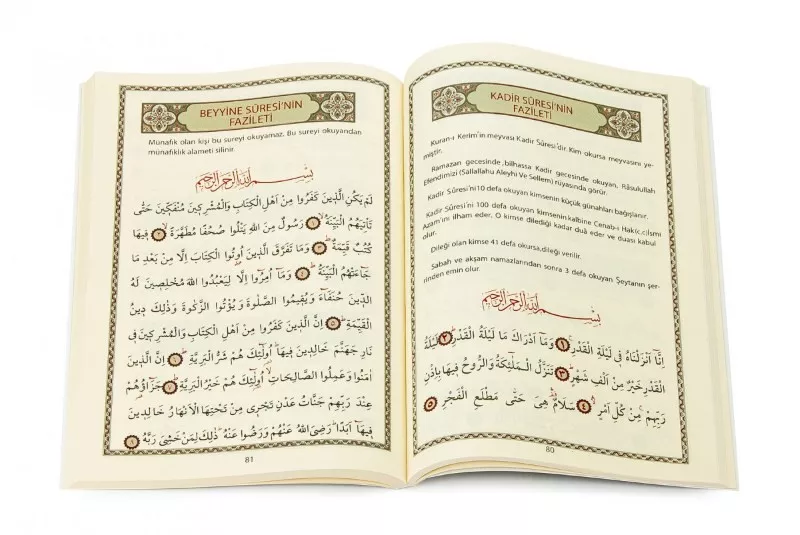 KADİR SÛRESİ'NİN
FAZİLETİ
Kuran-ı Kerim'in meyvası Kadir Sûresi'dir. Kim okursa meyvasını ye-
miştir.
Ramazan gecesinde ,bilhassa Kadir gecesinde okuyan, Râsulullah
Efendimizi (Sallallahu Aleyhi Ve Sellem) rüyasında görür.
Kadir Sûresi'ni10 defa okuyan kimsenin küçük günahları bağışlanır.
Kadir Sûresi'ni 100 defa okuyan kimsenin kalbine Cenab-ı Hak(c.c)İsmi
Azam'ını ilham eder. O kimse dilediği kadar duâ eder ve duası kabul
olur.
Dileği olan kimse 41 defa okursa,dileği verilir.
Sabah ve akşam namazlarından sonra 3 defa okuyan Şeytanın şer-
rinden emin olur.
بِسْمِ اللهِ الرَّحْمٰنِ الرَّحِيمِ
اِنَّٓا اَنْزَلْنَاهُ فِى لَيْلَةِ الْقَدْرِ ﴿١﴾ وَمَٓا اَدْرٰيكَ مَا لَيْلَةُ الْقَدْرِ ﴿٢﴾ لَيْلَةُ
الْقَدْرِ خَيْرٌ مِنْ اَلْفِ شَهْرٍ ﴿٣﴾ تَنَزَّلُ الْمَلٰٓئِكَةُ وَالرُّوحُ فِيهَا بِاِذْنِ
رَبِّهِمْ مِنْ كُلِّ اَمْرٍ ﴿٤﴾ سَلَامٌ هِىَ حَتّٰى مَطْلَعِ الْفَجْرِ ﴿٥﴾
80
BEYYİNE SÛRESİ'NİN
FAZİLETİ
Münafık olan kişi bu sureyi okuyamaz. Bu sureyi okuyandan
münafıklık alameti silinir.
بِسْمِ اللهِ الرَّحْمٰنِ الرَّحِيمِ
لَمْ يَكُنِ الَّذِينَ كَفَرُوا مِنْ اَهْلِ الْكِتَابِ وَالْمُشْرِكِينَ مُنْفَكِّينَ حَتّٰى
تَاْتِيَهُمُ الْبَيِّنَةُ ﴿١﴾ رَسُولٌ مِنَ اللهِ يَتْلُوا صُحُفًا مُطَهَّرَةً ﴿٢﴾ فِيهَا
كُتُبٌ قَيِّمَةٌ ﴿٣﴾ وَمَا تَفَرَّقَ الَّذِينَ اُوتُوا الْكِتَابَ اِلَّا مِنْ بَعْدِ مَا
جَٓاءَتْهُمُ الْبَيِّنَةُ ﴿٤﴾ وَمَٓا اُمِرُٓوا اِلَّا لِيَعْبُدُوا اللهَ مُخْلِصِينَ لَهُ
الدِّينَ حُنَفَٓاءَ وَيُقِيمُوا الصَّلٰوةَ وَيُؤْتُوا الزَّكٰوةَ وَذٰلِكَ دِينُ
الْقَيِّمَةِ ﴿٥﴾ اِنَّ الَّذِينَ كَفَرُوا مِنْ اَهْلِ الْكِتَابِ وَالْمُشْرِكِينَ فِى
نَارِ جَهَنَّمَ خَالِدِينَ فِيهَا اُولٰٓئِكَ هُمْ شَرُّ الْبَرِيَّةِ ﴿٦﴾ اِنَّ الَّذِينَ
اٰمَنُوا وَعَمِلُوا الصَّالِحَاتِ اُولٰٓئِكَ هُمْ خَيْرُ الْبَرِيَّةِ ﴿٧﴾ جَزَٓاؤُهُمْ
عِنْدَ رَبِّهِمْ جَنَّاتُ عَدْنٍ تَجْرِى مِنْ تَحْتِهَا الْاَنْهَارُ خَالِدِينَ
فِيهَٓا اَبَدًا رَضِىَ اللهُ عَنْهُمْ وَرَضُوا عَنْهُ ذٰلِكَ لِمَنْ خَشِىَ رَبَّهُ ﴿٨﴾
81